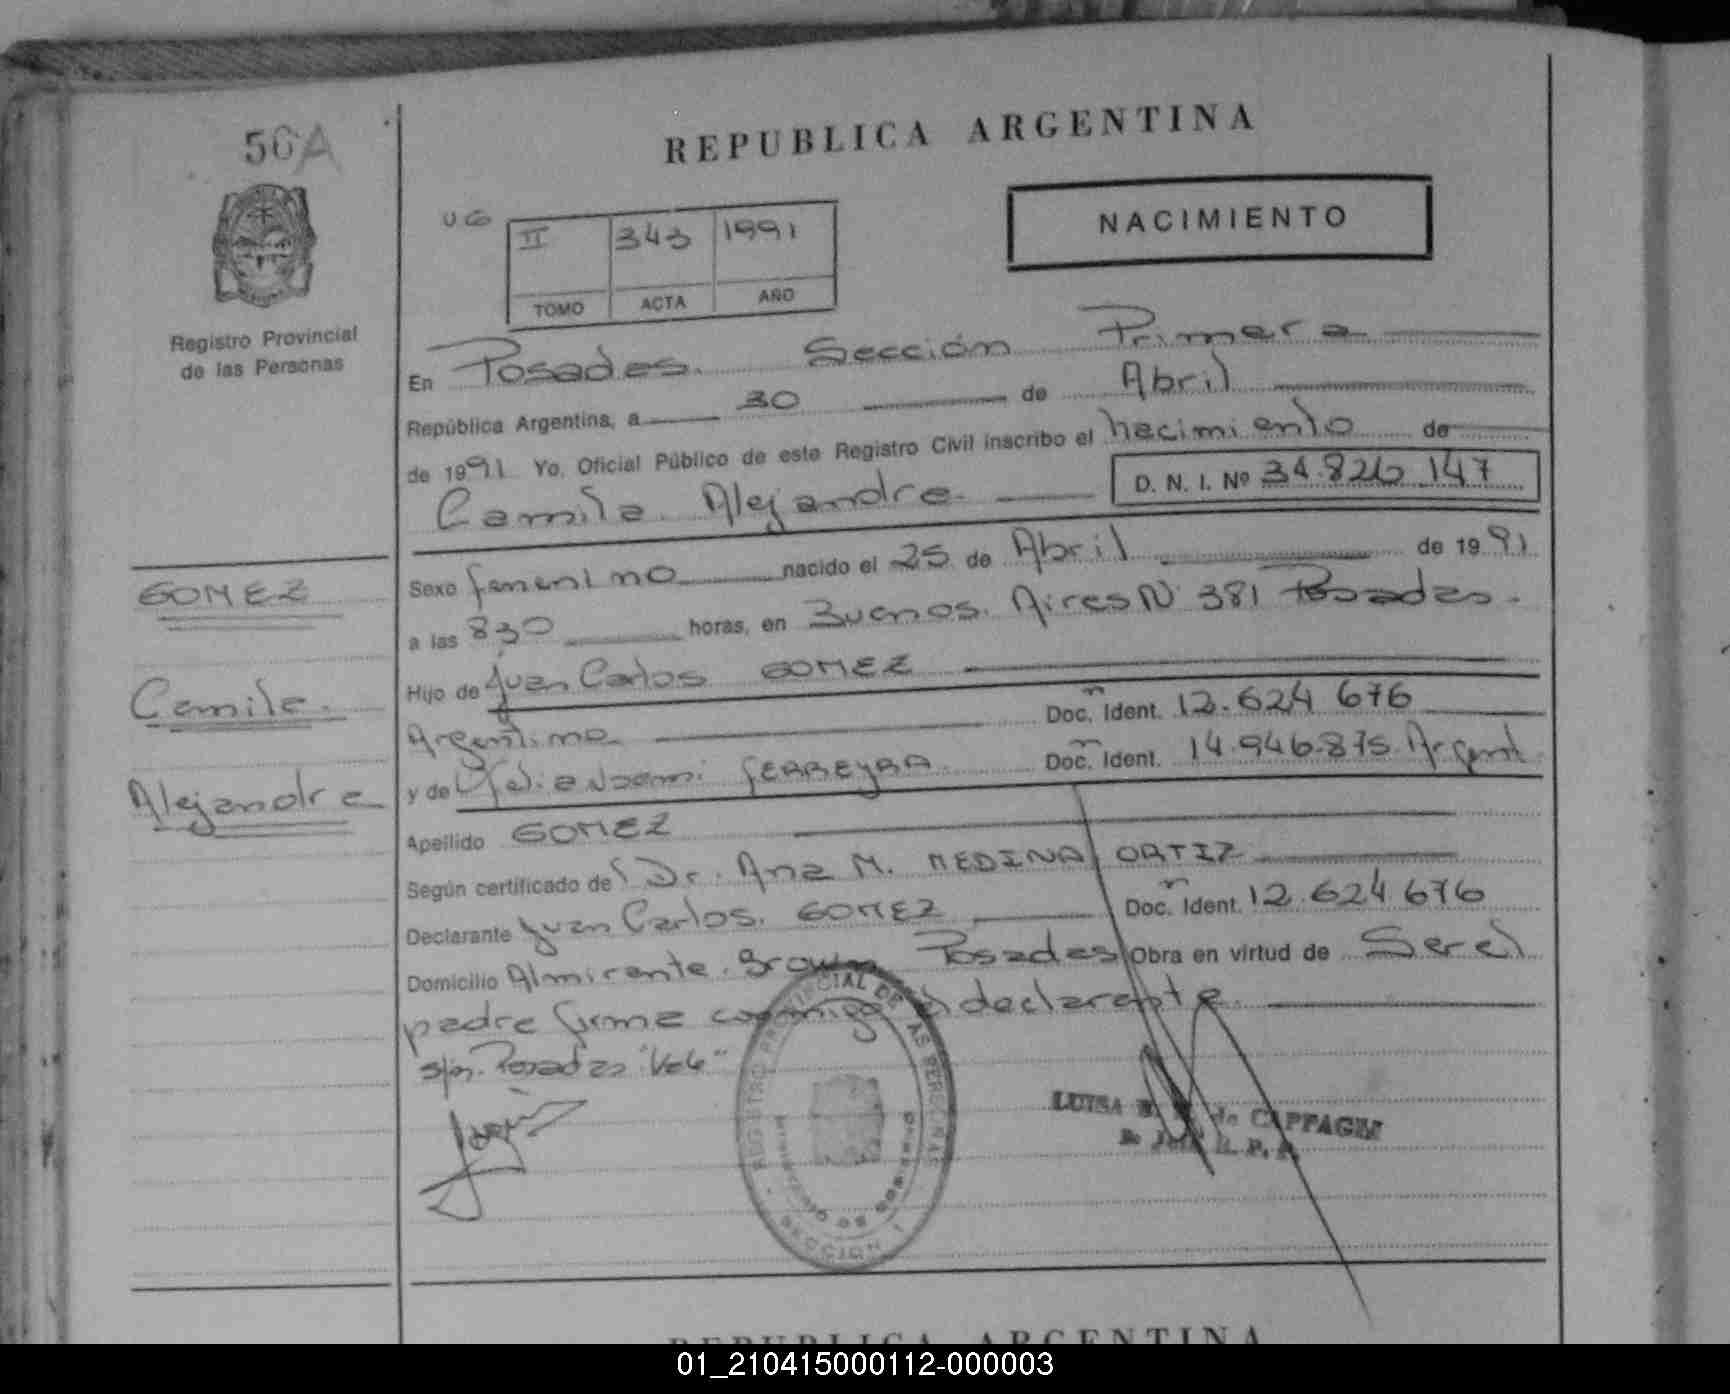 56A
REPUBLICA ARGENTINA
Registro Provincial
de las Personas
UG
II 343 1991
TOMO ACTA AÑO
NACIMIENTO
En Posadas. Sección Primera
República Argentina, a 30 de Abril
de 1991 Yo, Oficial Público de este Registro Civil inscribo el nacimiento de
Camila Alejandra. D. N. I. Nº 34.826.147
Sexo femenino nacido el 25 de Abril de 1991
a las 830 horas, en Buenos. Aires Nº 381 Posadas.
Hijo de Juan Carlos GOMEZ
Argentino Doc. Ident. 12.624 676
y de Noemi FERREYRA Doc. Ident. 14.946.875. Argent.
Apellido GOMEZ
Según certificado de Dr. Ana M. MEDINA ORTIZ
Declarante Juan Carlos. GOMEZ Doc. Ident. 12.624 676
Domicilio Almirante. Brown Posadas Obra en virtud de Ser el
padre firma conmigo el declarante
s/n. Posadas "Vale"
GOMEZ
Camila.
Alejandra
REGISTRO PROVINCIAL DE LAS PERSONAS
LUISA de CAPPAGLI
R. P. P.
REPUBLICA ARGENTINA
01_210415000112-000003